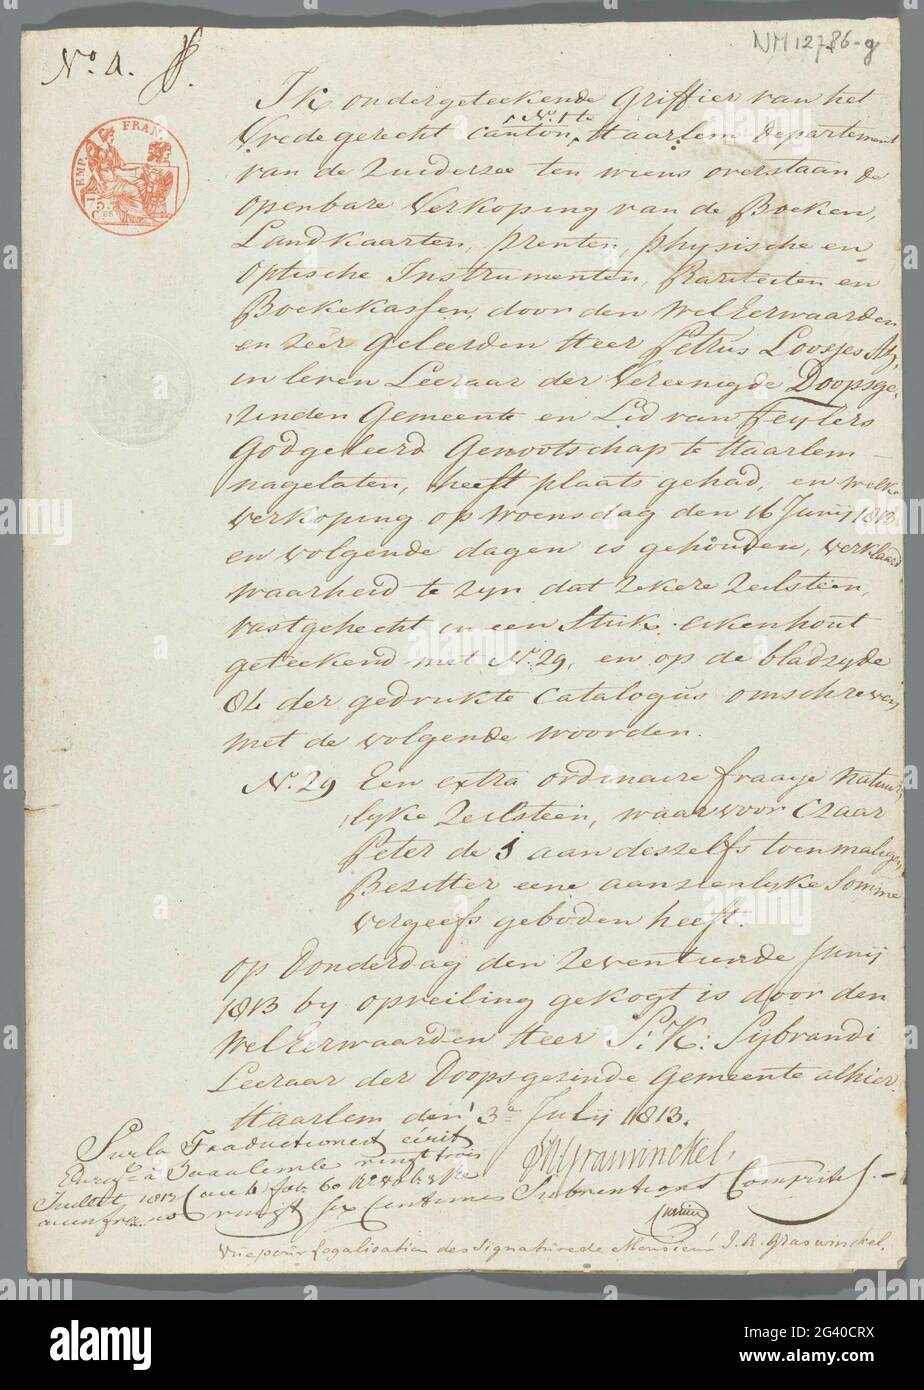 N.º 4.
NM 12786-g
EMP. FRAN.
75.
C.ES
Ik ondergeteekende Griffier van het
Vredegerecht Canton N.º 1 te Haarlem Departement
van de Zuiderzee ten wiens overstaan de
openbare Verkoping van de Boeken,
Landkaarten, Prenten, Physische en
Optische Instrumenten, Rariteiten en
Boekekassen, door den WelEerwaarden
en zéér Geleerden Heer Petrus Loosjes Az.
in leven Leeraar der Vereenigde Doopsge-
zinden Gemeente en Lid van Teylers
Godgeleerd Genootschap te Haarlem
nagelaten, heeft plaats gehad, en welke
verkoping op Woensdag den 16 Junij 1813
en volgende dagen is gehouden, verklaard
waarheid te zyn dat zekere Zeilsteen,
vastgehecht in een Stuk eikenhout
geteekend met N.º 29, en op de bladzyde
84 der gedrukte Catalogus omschreven
met de volgende woorden.
N.º 29 Een extra ordinaire fraaye natuur-
lyke Zeilsteen, waarvoor Czaar
Peter de 1 aan deszelfs toenmaligen
Bezitter eene aanzienlyke Somme
vergeefs geboden heeft.
op Donderdag den zeventiende Junij
1813 by opveiling gekogt is door den
WelEerwaarden Heer S: K: Sybrandi
Leeraar der Doopsgezinde Gemeente alhier.
Haarlem den 3e July 1813.
Graswinckel,
Sur la Traduction écrit
Enreg.é à Haarlem le vingt trois
Juillet 1813
vingt six Centimes Subventions Compris
Vue pour Legalisation des Signature de Monsieur J. R. Graswinckel.
alamy
Image ID: 2G40CRX
www.alamy.com